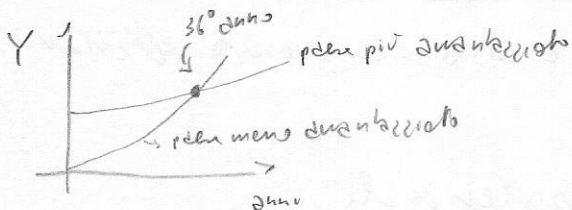 36° anno
Y
paese più avantaggiato
paese meno avantaggiato
anno